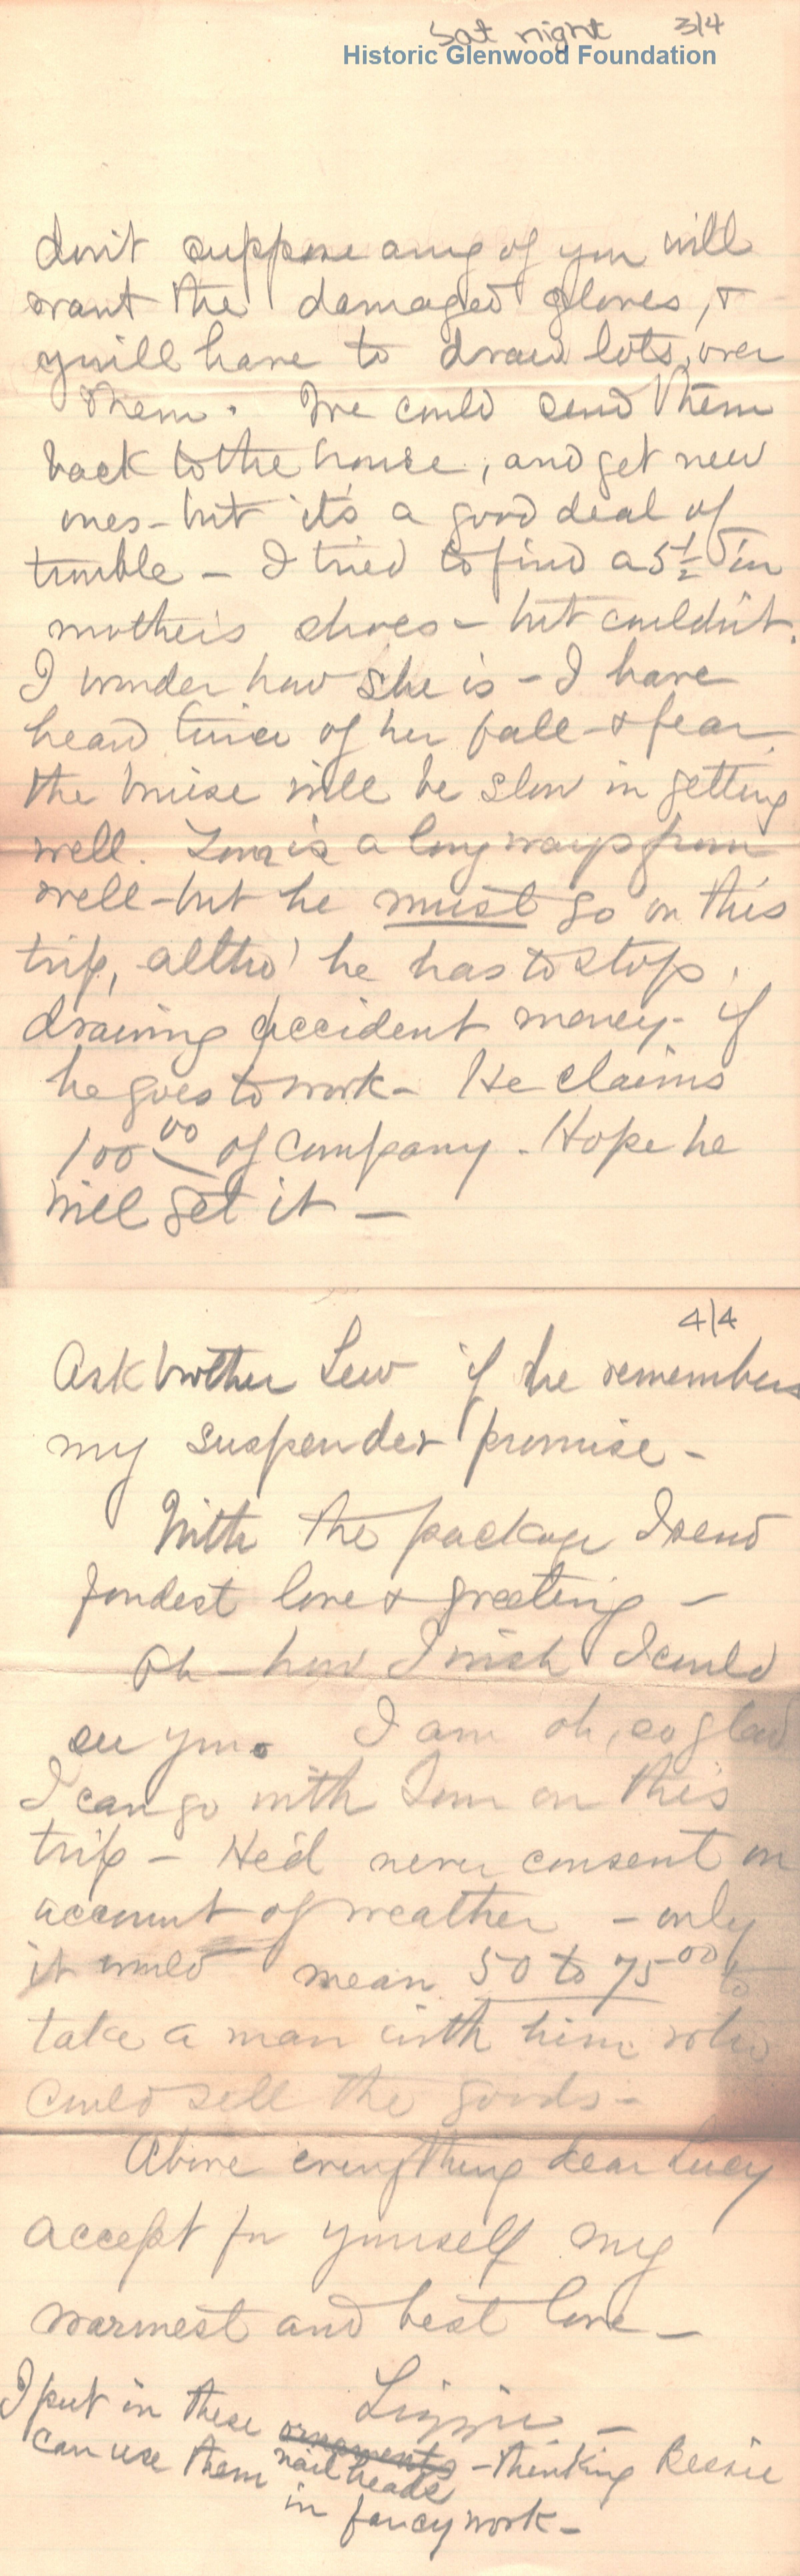 Sat night 3/4
Historic Glenwood Foundation
don't suppose any of you will
want the damaged gloves, &
y'will have to draw lots over
them. We could send them
back to the house, and get new
ones - but it's a good deal of
trouble - I tried to find a 5½ in
mother's shoes - but couldn't.
I wonder how she is - I have
heard twice of her fall - & fear
the bruise will be slow in getting
well. Tom is a long ways from
well - but he must go on this
trip, altho' he has to stop
drawing accident money - if
he goes to work - He claims
100 00 of company. Hope he
will get it -
4/4
Ask brother Lew if he remembers
my suspender promise -
With the package I send
fondest love & greeting -
Oh - how I wish I could
see you. I am oh, so glad
I can go with Tom on this
trip - He'd never consent on
account of weather - only
it would mean 50 to 75 00 to
take a man with him who
could sell the goods -
Above everything dear Lucy
accept for yourself my
warmest and best love -
Lizzie -
I put in these ornaments nail heads - thinking Bessie
can use them in fancy work -